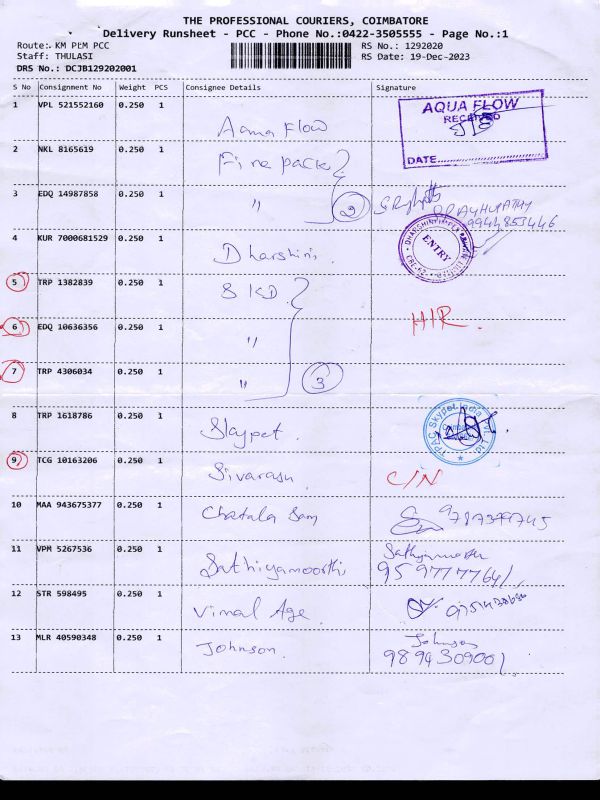 THE PROFESSIONAL COURIERS, COIMBATORE
Delivery Runsheet - PCC - Phone No.:0422-3505555 - Page No.:1
Route: KM PLM PCC
RS No.: 1292020
Staff: THULASI
RS Date: 19-Dec-2023
DRS No.: DCJB129202001
S No Consignment No Weight PCS Consignee Details Signature
1 VPL 521552160 0.250 1 Aqua Flow
AQUA FLOW
RECEIVED
DATE
2 NKL 8165619 0.250 1 Fine pack
3 EDQ 14987858 0.250 1 " 2
4 KUR 7000681529 0.250 1 Dharshini
ENTRY
5 TRP 1382839 0.250 1 SKD
6 EDQ 10636356 0.250 1 " HIR.
7 TRP 4306034 0.250 1 " 3
8 TRP 1618786 0.250 1 Skypet.
9 TCG 10163206 0.250 1 Sivarasu C/N
10 MAA 943675377 0.250 1
11 VPM 5267536 0.250 1 Sathiyamoorthi
12 STR 598495 0.250 1 Vimal Age.
13 MLR 40590348 0.250 1 Johnson. Johnson
9894309001